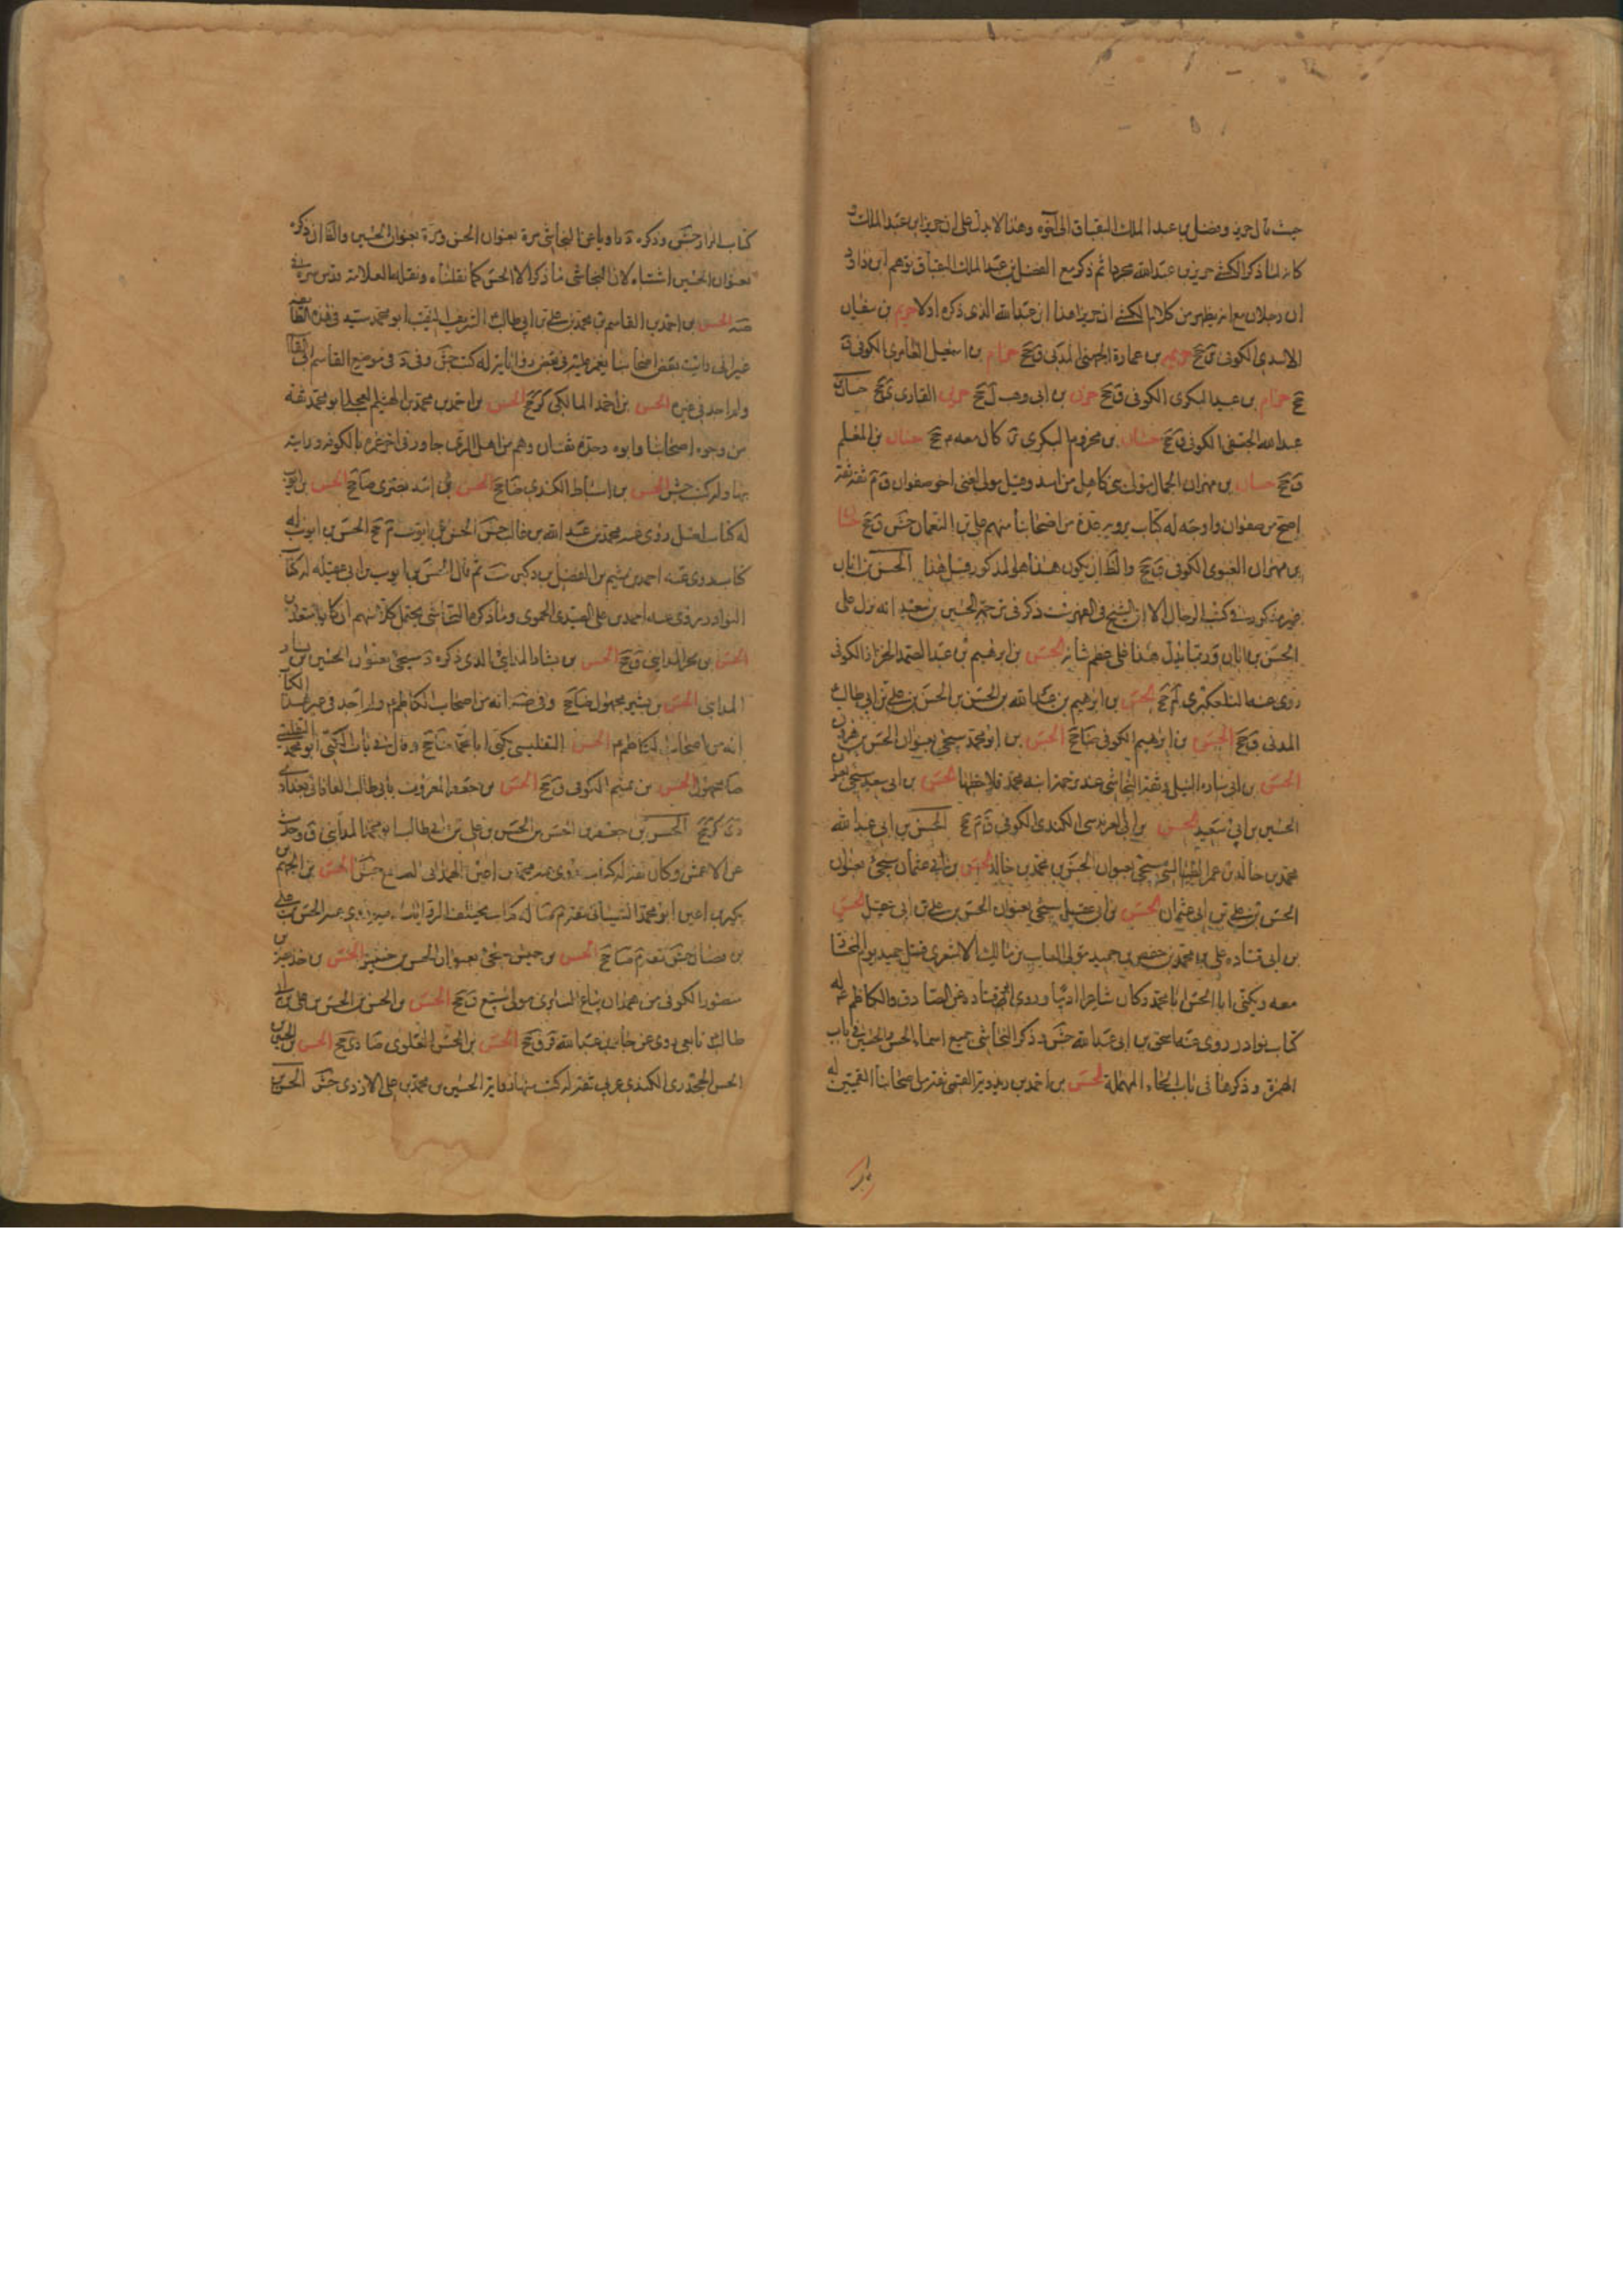 حيث قال حريز وفضل بن عبد الملك البقباق الى آخره وهذا لا يدل على ان حريزا بن عبد الملك و
كانه لما ذكر الكشي حريز بن عبد الله مجردا ثم ذكر مع الفضل بن عبد الملك البقباق توهم ابن داود
ان رجلان مع انه يظهر من كلام الكشي ان حريزا هذا ابن عبد الله الذي ذكره اولا حريم بن سفيان
الاسدي الكوفي ق جخ حريم بن عمارة الجهني المدني ق جخ حزام بن اسمعيل العامري الكوفي ق
جخ حزام بن عبد البكري الكوفي ق جخ حزن بن ابي وهب ل جخ القاري جخ حسان
عبد الله الجعفي الكوفي ق جخ حسان بن مخزوم البكري كان معه م جخ حسان بن المعلم
ق جخ حسان بن مهران الجمال مولى بني كاهل من اسد وقيل مولى لغني اخو صفوان ثقة ثقة
اصح من صفوان واوجه له كتاب يرويه عدة من اصحابنا منهم علي بن النعمان جش ق جخ حسان
بن مهران الغنوي الكوفي ق جخ والظ ان يكون هذا هو المذكور قبل هذا الحسن بن ابان
غير مذكور في كتب الرجال الا ان الشيخ في الفهرست ذكر في ترجمة الحسين بن سعيد انه نزل على
الحسن بن ابان وربما يدل هذا على عظم شانه الحسن بن ابرهيم بن عبد الصمد الخزاز الكوفي
روى عنه التلعكبري لم جخ الحسن بن ابرهيم بن عبد الله بن الحسن بن الحسن بن علي بن ابي طالب
المدني ق جخ الحسن بن ابرهيم الكوفي ضا جخ الحسن بن ابو محمد سيجئ بعنوان الحسن بن هرون
الحسن بن ابي سارة النيلي وثقه النجاشي عند ترجمة ابنه محمد فلاحظها الحسن بن ابي سعيد سيجئ بعنوان
الحسين بن ابي سعيد الحسن بن ابي العرندس الكندي الكوفي ق م جخ الحسن بن ابي عبد الله
محمد بن خالد بن عمر الطيالسي سيجئ بعنوان الحسن بن محمد بن خالد الحسن بن ابي عثمان سيجئ بعنوان
الحسن بن علي بن ابي عثمان الحسن بن ابي عقيل سيجئ بعنوان الحسن بن علي بن ابي عقيل الحسن
بن ابي قتادة علي بن محمد بن حفص بن حميد مولى السايب بن مالك الاشعري قتل حميد يوم المختار
معه ويكنى ابا الحسن ابا محمد وكان شاعرا اديبا وروى ابو قتادة عن الصادق والكاظم ع له
كتاب نوادر روى عنه اسحق بن ابي عبد الله جش وذكر النجاشي جميع اسماء الحسن والحسين في باب
الهمزة وذكرها في باب الحاء المهملة الحسن بن احمد بن ريذويه القمي ثقة من اصحابنا القميين له
كتاب المزار جش وذكره د ناويا عن النجاشي مرة بعنوان الحسن ومرة بعنوان الحسين والظ ان ذكره
بعنوان الحسين اشتباه لان النجاشي ما ذكر الا الحسن كما نقلناه ونقله العلامة قدس سره في
صه الحسن بن احمد بن القاسم بن محمد بن علي بن ابي طالب الشريف النقيب ابو محمد سيد في هذه الطائفة
غير اني رايت بعض اصحابنا يغمز عليه في بعض رواياته له كتب جش وفي د في موضع القاسم ابي القاسم
ولم اجد في غيره الحسن بن احمد المالكي كر جخ الحسن بن احمد بن محمد بن الهيثم العجلي ابو محمد ثقة
من وجوه اصحابنا وابوه وجده ثقتان وهم من اهل الري جاور في اخر عمره بالكوفة ورايته
بها وله كتب جش الحسن بن اسباط الكندي ضا جخ الحسن بن اسد بصري ضا جخ الحسن بن ايوب
له كتاب اصل روى عنه محمد بن عبد الله بن غالب جش الحسن بن ايوب م جخ الحسن بن ايوب له
كتاب روى عنه احمد بن ميثم بن الفضل بن دكين ست ثم قال الحسن بن ايوب بن ابي عقيلة له كتاب
النوادر روى عنه احمد بن علي الصيدي الحموي وما ذكره النجاشي يحتمل كلا منهم ان كانا متعددين
الحسن بن بحر المدايني ق جخ الحسن بن بشار المدايني الذي ذكره د سيجئ بعنوان الحسين بن بشار
المدايني الحسن بن بشير مجهول ضا جخ وفي صه انه من اصحاب الكاظم ولم اجد في غير هذا الكتاب
انه من اصحاب الكاظم ع الحسن التفليسي يكنى ابا محمد ضا جخ وقال في باب الكنى ابو محمد التفليسي
ضا مجهول الحسن بن تميم الكوفي ق جخ الحسن بن جعفر المعروف بابي طالب الفافاني بغدادي
دي كر جخ الحسن بن جعفر بن الحسن بن الحسن بن علي بن ابي طالب ابو محمد المدايني ق وحدث
عن الاعمش وكان ثقة له كتاب روى عنه محمد بن اعين الهمداني الصايغ جش الحسن بن الجهم
بكير بن اعين ابو محمد الشيباني ثقة له كتاب مختلف الروايات فيه روى عنه الحسن بن علي
بن فضال جش ثقة م ضا جخ الحسن بن حبيش سيجئ بعنوان الحسن بن خنيس الحسن بن حذيفة بن
منصور الكوفي من همدان بياع السابري مولى سبيع ق جخ الحسن بن الحسن بن الحسن بن علي بن ابي
طالب تابعي روى عن جابر بن عبد الله قر ق جخ الحسن بن الحسن العلوي ضا دي جخ الحسن بن الحسين
الحسن الجحدري الكندي عربي ثقة له كتب منها رواية الحسين بن محمد بن علي الازدي جش الحسن